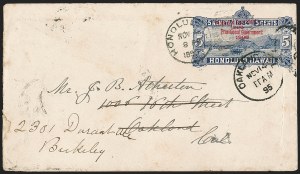 HONOLULU
NOV
5 CENTS
Provisional Government
HONOLULU HAWAII
OAKLAND
NOV
11 AM
95
Mr. J. B. Atherton
1006 16th Street
Oakland
Cal.
2301 Durant
Berkeley